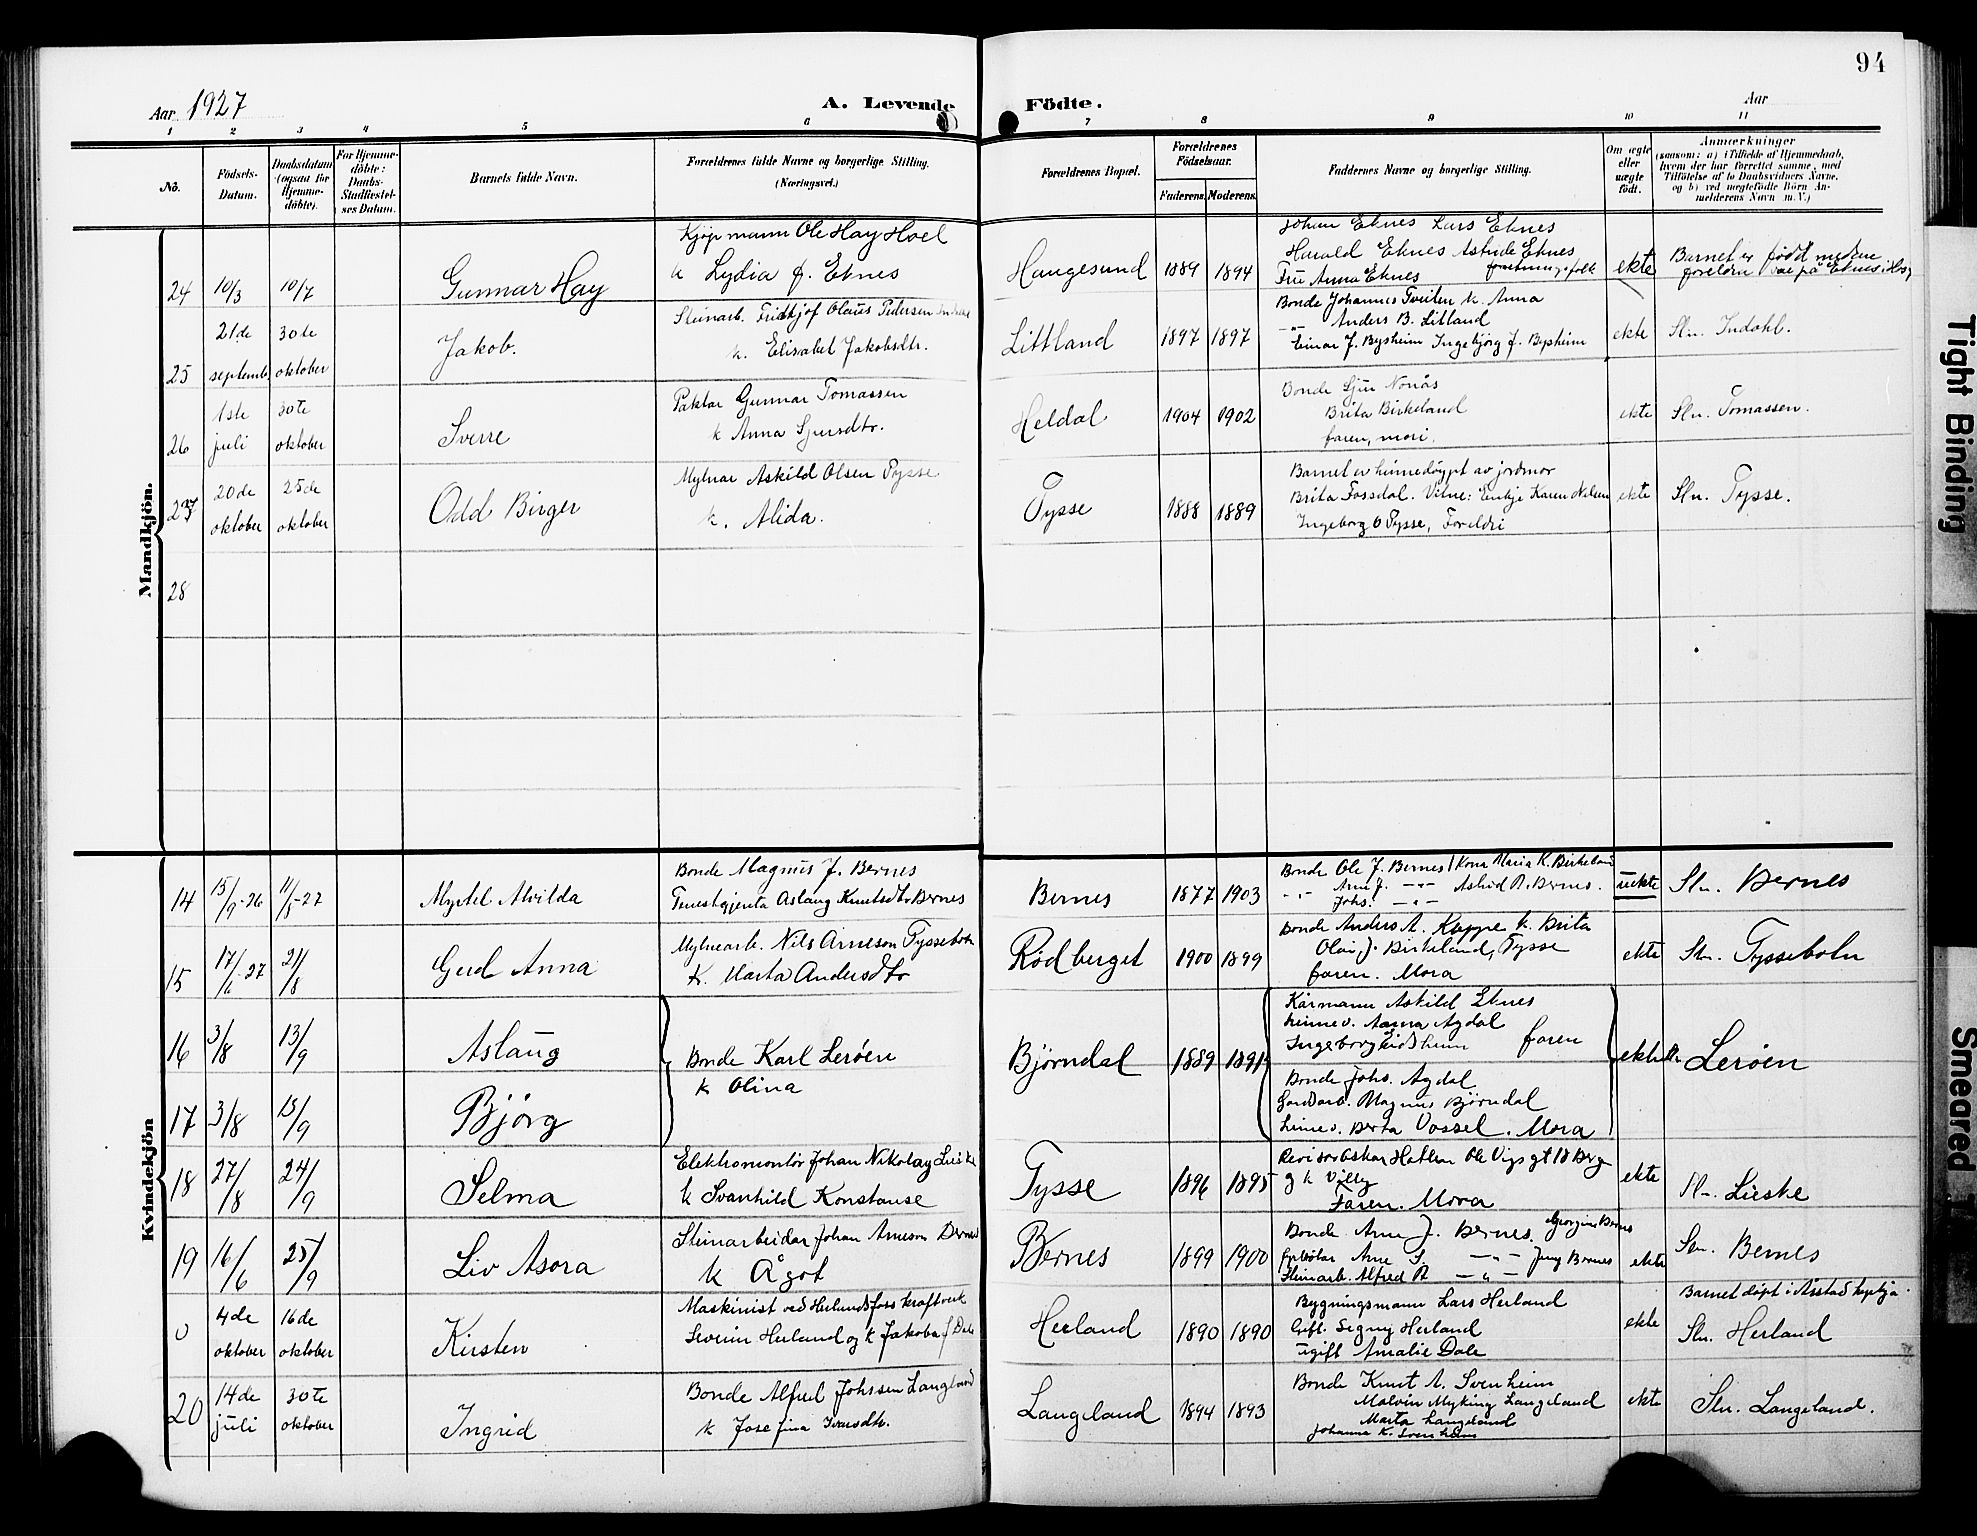 94
Aar 1927
A. Levende Födte.
Aar
1 2 3 4 5 6 7 8 9 10 11
No.
Födsels-Datum.
Daabsdatum (ogsaa for Hjemme-döbte).
For Hjemme-döbte: Daabs-Stadfæstel-ses Datum.
Barnets fulde Navn.
Forældrenes fulde Navne og borgerlige Stilling. (Næringsvei.)
Forældrenes Bopæl.
Forældrenes Födselsaar.
Faderens. Moderens.
Faddernes Navne og borgerlige Stilling.
Om ægte eller uægte födt.
Anmærkninger
(saasom: a) i Tilfælde af Hjemmedaab,
hvem der har forrettet samme, med
Tilföielse af to Daabsvidners Navne,
og b) ved uægtefödte Börn An-
melderens Navn m. V.)
Mandkjön.
24 10/3 10/7 Gunnar Hay
Kjøpmann Ole Hay Hoel
k Lydia f. Eknes
Haugesund 1889 1894
Johan Eknes Lars Eknes
Harald Eknes Astrid Eknes
Fru Anna Eknes forretningsfolk
ekte
Barnet er født medan
foreldri var på Eknes i Hosg
25 21de september 30te oktober Jakob.
Steinarb. Fridtjof Olaus Pedersen Indahl
k. Elisabet Jakobsdtr.
Littland 1897 1897
Bonde Johannes Tveiten k. Anna
-"- Anders B. Litland
Einar J. Bysheim Ingebjørg J. Bysheim
ekte Sln. Indahl.
26 1ste juli 30te oktober Sverre
Paktar Gunnar Tomassen
k Anna Sjursdtr.
Heldal 1904 1902
Bonde Sjur Nonås
Brita Birkeland
faren, mori.
ekte Sln. Tomassen.
27 20de oktober 25de oktober Odd Birger
Mylnar Askild Olsen Tysse
k. Alida.
Tysse 1888 1889
Barnet er heimedøypt av jordmor
Brita Fossdal. Vitne: Enkje Karen Nilsen
Ingeborg O Tysse, Foreldri
ekte Sln. Tysse.
28
Kvindekjön
14 15/9-26 11/8-27 Myrtel Alvilda
Bonde Magnus J. Bernes
Tenestgjenta Aslaug Knutsdtr Bernes
Bernes 1877 1903
Bonde Ole J. Bernes / Kona Maria K. Birkeland
-"- Arne J. -"- Astrid A. Bernes.
-"- Johs. -"-
uekte Sln. Bernes
15 17/6-27 21/8 Gerd Anna
Mylnearb. Nils Arneson Tyssebotn
k. Marta Andersdtr
Rødberget 1900 1899
Bonde Anders A. Kuppe k. Brita
Olai J. Birkeland, Tysse
faren. Mora
ekte Sln. Tyssebotn
16 3/8 13/9 Aslaug
17 3/8 13/9 Bjørg
Bonde Karl Lerøen
k Olina
Bjørndal 1889 1891
Kårmann Askild Eknes
heimev. Anna Agdal
Ingeborg Eidsheim faren
Bonde Johs. Agdal
Gardsarb. Magnus Bjørndal
heimev. Berta Vossel. Mora
ekte Sln Lerøen
18 27/8 24/9 Selma
Elektromontør Johan Nikolay Lieske
k Svanhild Konstanse
Tysse 1896 1895
Revisor Oskar
g k Villy
Faren. Mora
ekte Sln. Lieske
19 16/6 25/9 Liv Asora
Steinarbeidar Johan Arneson Bernes
k Ågot
Bernes 1899 1900
Bonde Arne J. Bernes. Georgine Bernes
Arne S. -"- Jenny Bernes
Steinarb. Alfred A -"-
ekte Sln. Bernes
0 4de oktober 16de oktober Kirsten
Maskinist ved Herlandsfoss kraftverk
Severin Herland og k Jakoba f Dale
Herland 1890 1890
Bygningsmann Lars Herland
Gift. Segny Herland
ugift Amalie Dale
ekte
Barnet døpt i Årstad kyrkja.
Sln. Herland
20 14de juli 30te oktober Ingrid
Bonde Alfred Johssen Langeland
k Josefina Ivarsdtr.
Langeland 1894 1893
Bonde Knut A. Svenheim
Malvin Myking Langeland
Marta Langeland
Johanna K. Svenheim
ekte Sln. Langeland.
Tight Binding
Smeared